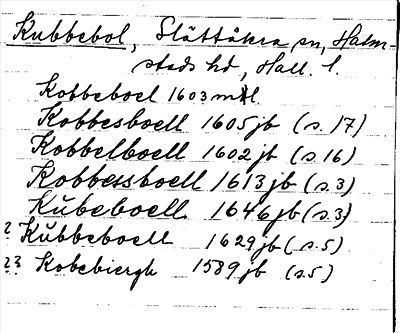 Kubbebol, Slättåkra sn, Halm-
stads hd, Hall. l.
Kobbeboel 1603 mtl.
Kobbesboell 1605 jb (s. 17)
Kobbelboell 1602 jb (s. 16)
Kobbessboell 1613 jb (s. 3)
Kŭbeboell 1646 jb (s. 3)
? Kŭbbeboell 1629 jb (s. 5)
?? Kobebiergh 1589 jb (s. 5)